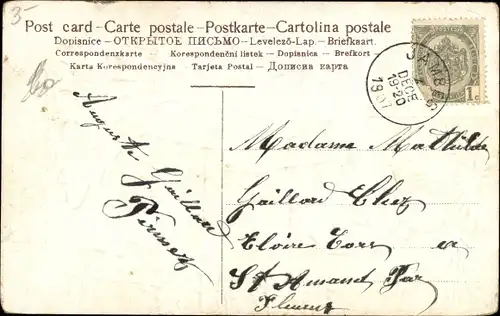 3-
Post card - Carte postale - Postkarte - Cartolina postale
Dopisnice - ОТКРЫТОЕ ПИСЬМО - Levelező-Lap. - Briefkaart.
Correspondenzkarte - Korespondenční lístek - Dopisnica - Brefkort
Karta Korespondencyjna - Tarjeta Postal - Дописна карта
JAMBES
DECE
19-20
19
1c
Auguste Gaillard
Madame Mathilde
Gaillard Chez
St Amand Par
Fleurus